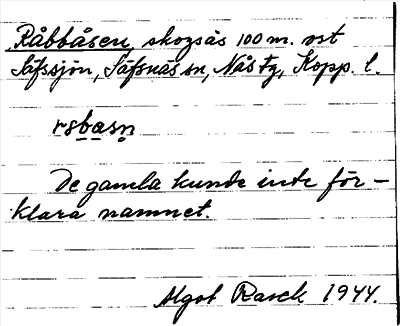 Råbbåsen, skogsås 100 m. nst
Säfssjön, Säfsnäs sn, Nås tg, Kopp. l.
De gamla kunde inte för-
klara namnet.
Algot Rasck 1944.